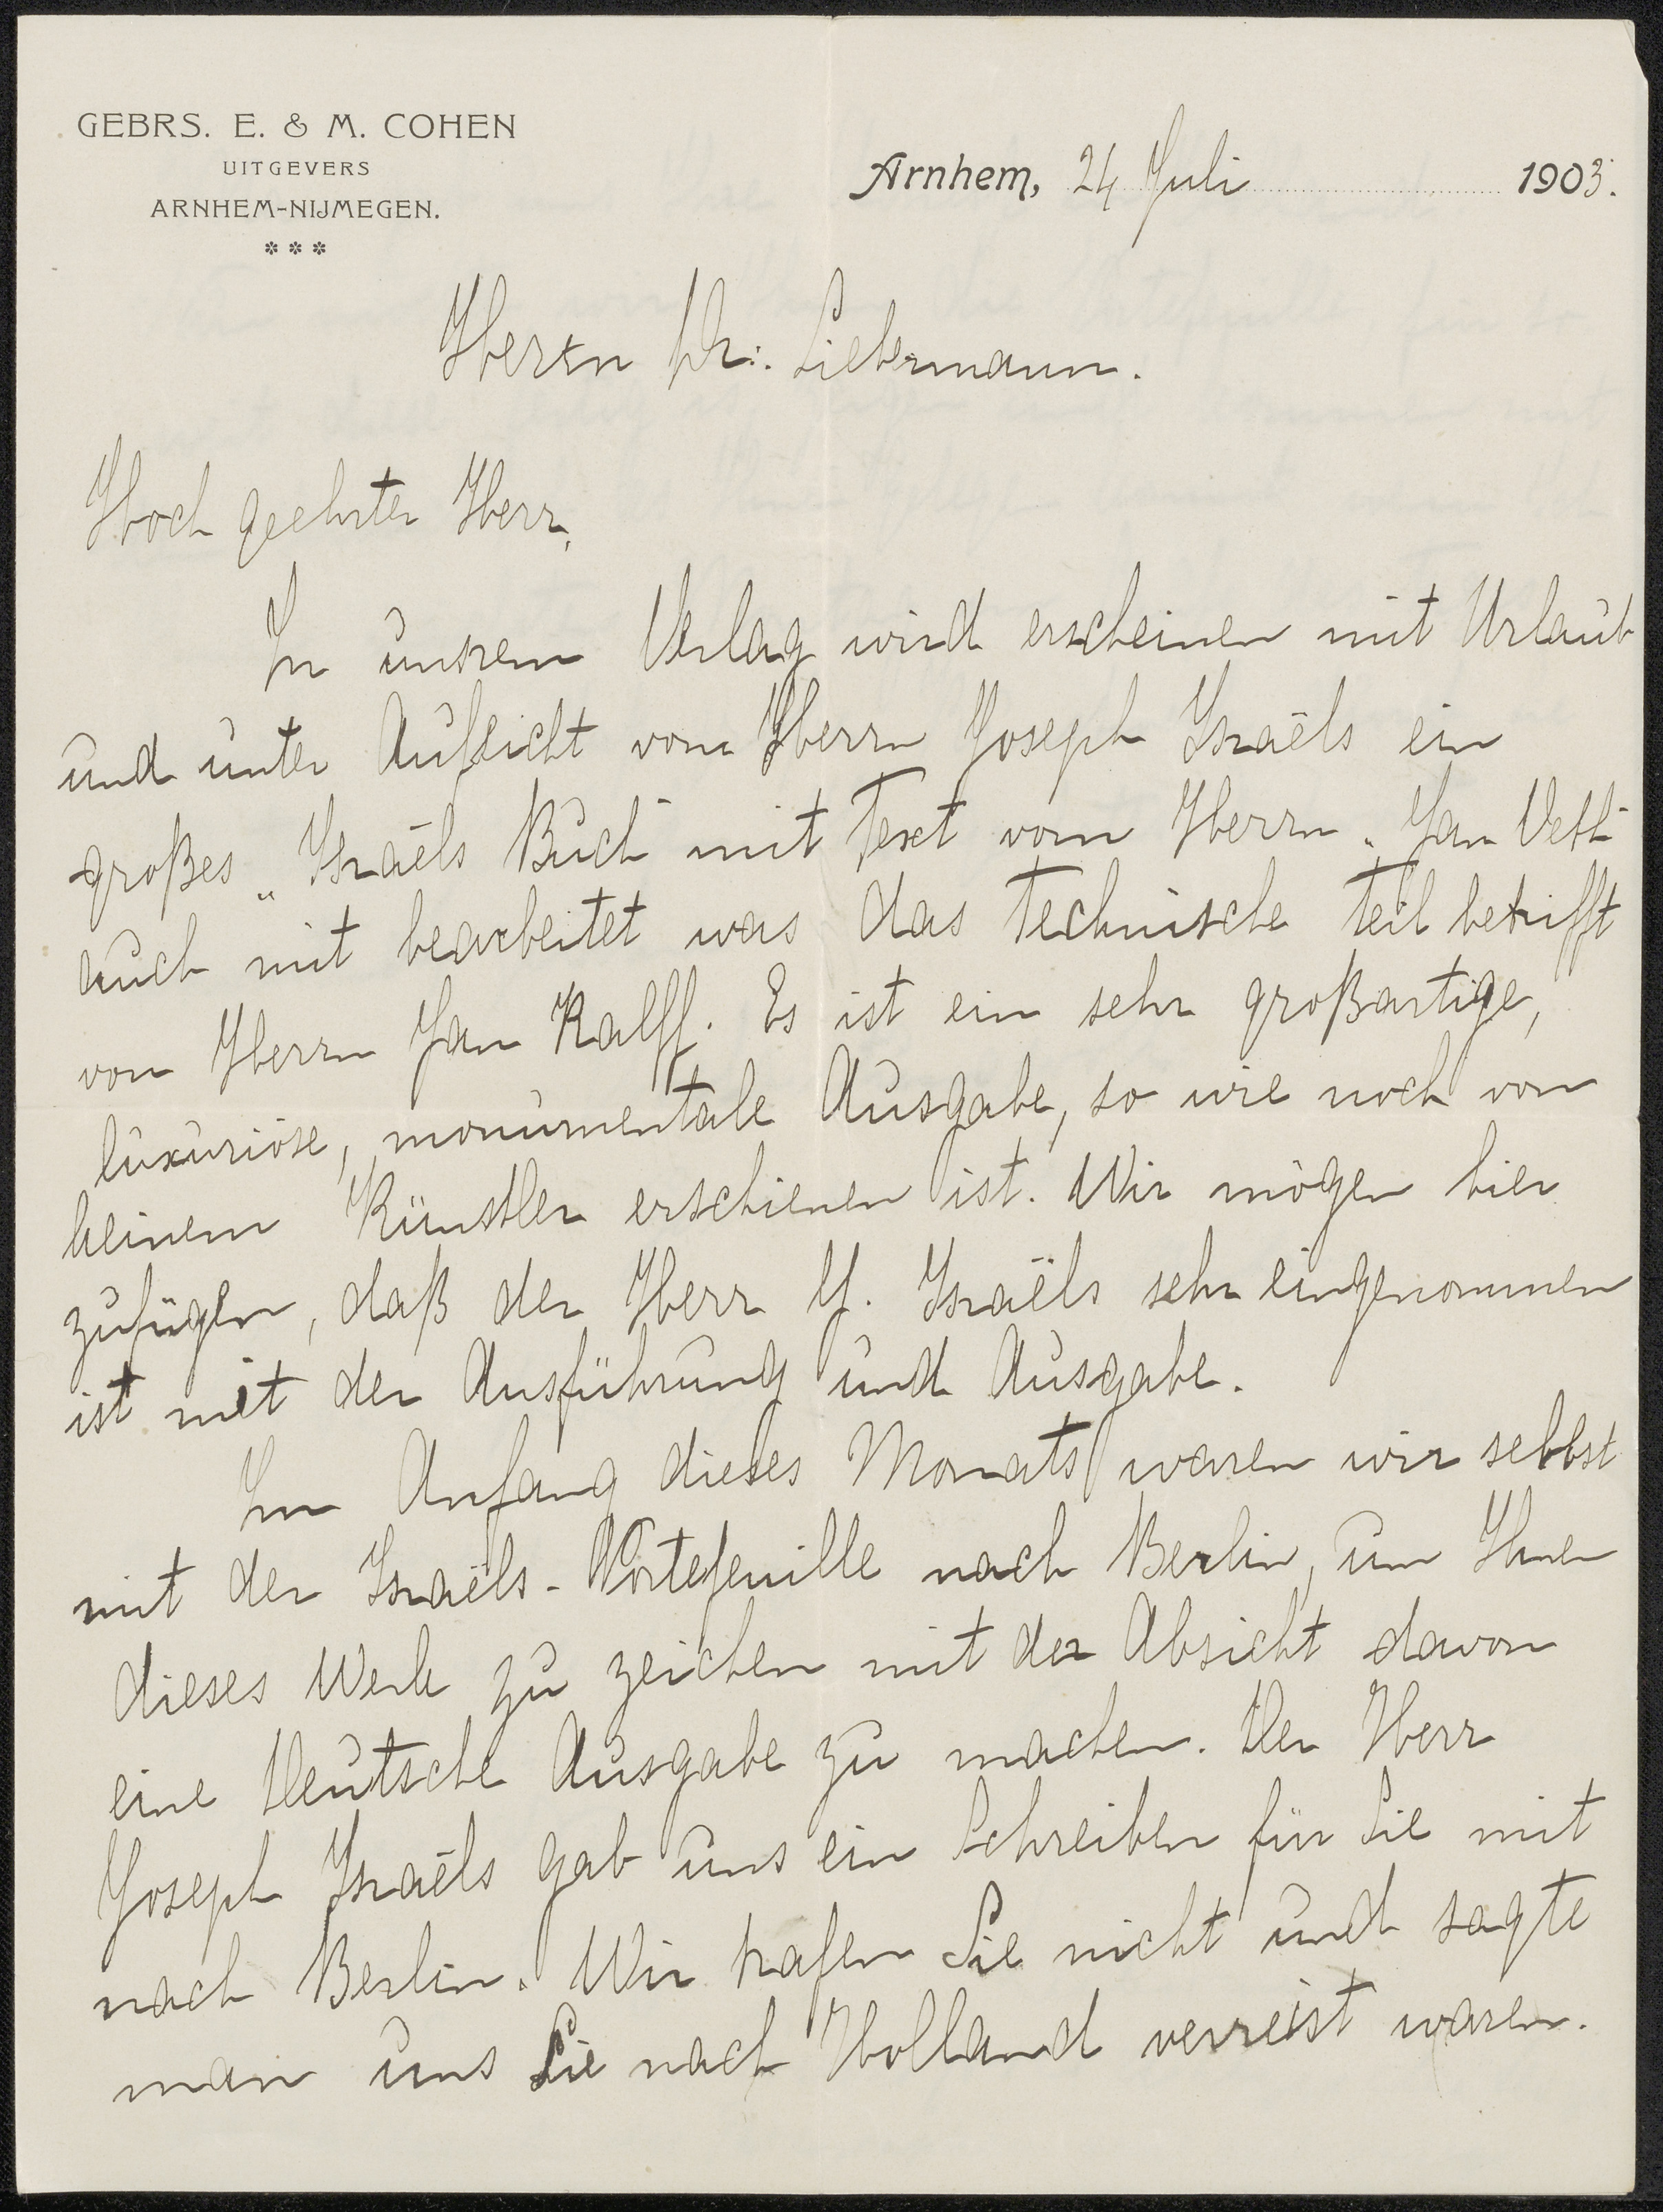 GEBRS. E. & M. COHEN
UITGEVERS
ARNHEM-NIJMEGEN.
***
Arnhem, 24 Juli 1903.
Herrn Dr. Liebermann.
Hoch geehrter Herr,
In unsrem Verlag wird erscheinen mit Urlaub
und unter Aufsicht vom Herrn Joseph Israëls ein
großes „Israëls Buch" mit Text vom Herrn „Jan Veth"
auch mit bearbeitet was das technische Teil betrifft
von Herrn Jan Kalff. Es ist ein sehr großartige,
luxuriöse, monumentale Ausgabe, so wie noch von
keinem Künstler erschienen ist. Wir mögen hier
zufügen, daß der Herr J. Israëls sehr eingenommen
ist mit der Ausführung und Ausgabe.
Im Anfang dieses Monats waren wir selbst
mit der Israëls-Portefeuille nach Berlin, um Ihnen
dieses Werk zu zeichen mit der Absicht davon
eine Deutsche Ausgabe zu machen. Der Herr
Joseph Israëls gab uns ein Schreiben für Sie mit
nach Berlin. Wir trafen Sie nicht und sagte
man uns Sie nach Holland verreist waren.